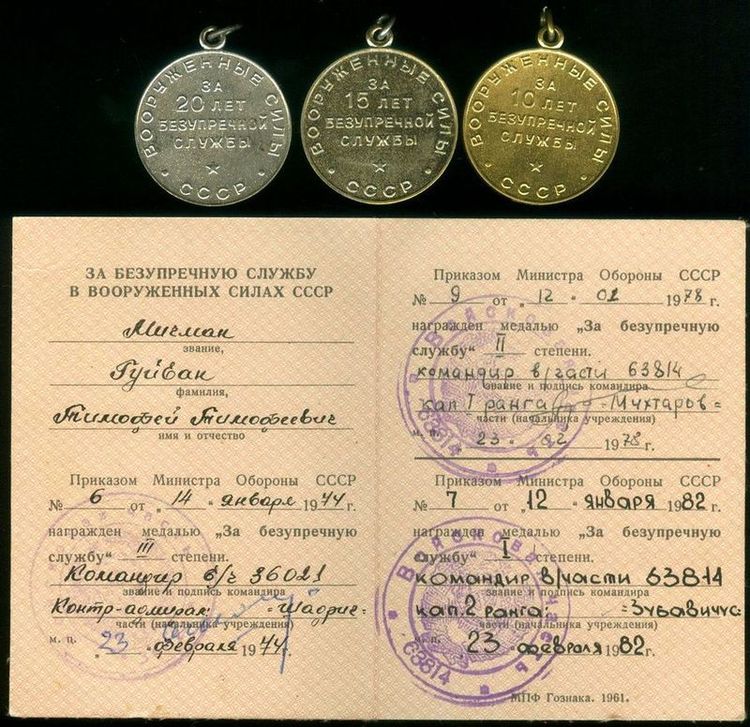 ВООРУЖЕННЫЕ СИЛЫ
ЗА
20 ЛЕТ
БЕЗУПРЕЧНОЙ
СЛУЖБЫ
СССР
ВООРУЖЕННЫЕ СИЛЫ
ЗА
15 ЛЕТ
БЕЗУПРЕЧНОЙ
СЛУЖБЫ
СССР
ВООРУЖЕННЫЕ СИЛЫ
ЗА
10 ЛЕТ
БЕЗУПРЕЧНОЙ
СЛУЖБЫ
СССР
ЗА БЕЗУПРЕЧНУЮ СЛУЖБУ
В ВООРУЖЕННЫХ СИЛАХ СССР
Мичман
звание,
Гуйван
фамилия,
Тимофей Тимофеевич
имя и отчество
Приказом Министра Обороны СССР
№ 6 от „14" января 1974 г.
награжден медалью „За безупречную
службу" III степени.
Командир в/ч 36021
звание и подпись командира
Контр-адмирал
части (начальника учреждения)
м. п. 23 февраля 1974 г.
Приказом Министра Обороны СССР
№ 9 от „12" 02 1978 г.
награжден медалью „За безупречную
службу" II степени.
командир в/части 63814
звание и подпись командира
кап I ранга =Мухтаров=
части (начальника учреждения)
м. п. 23 02 1978 г.
Приказом Министра Обороны СССР
№ 7 от „12" января 1982 г.
награжден медалью „За безупречную
службу" I степени.
командир в/части 63814
звание и подпись командира
кап. 2 ранга
части (начальника учреждения)
м. п. 23 февраля 1982 г.
МПФ Гознака. 1961.
63814
63814